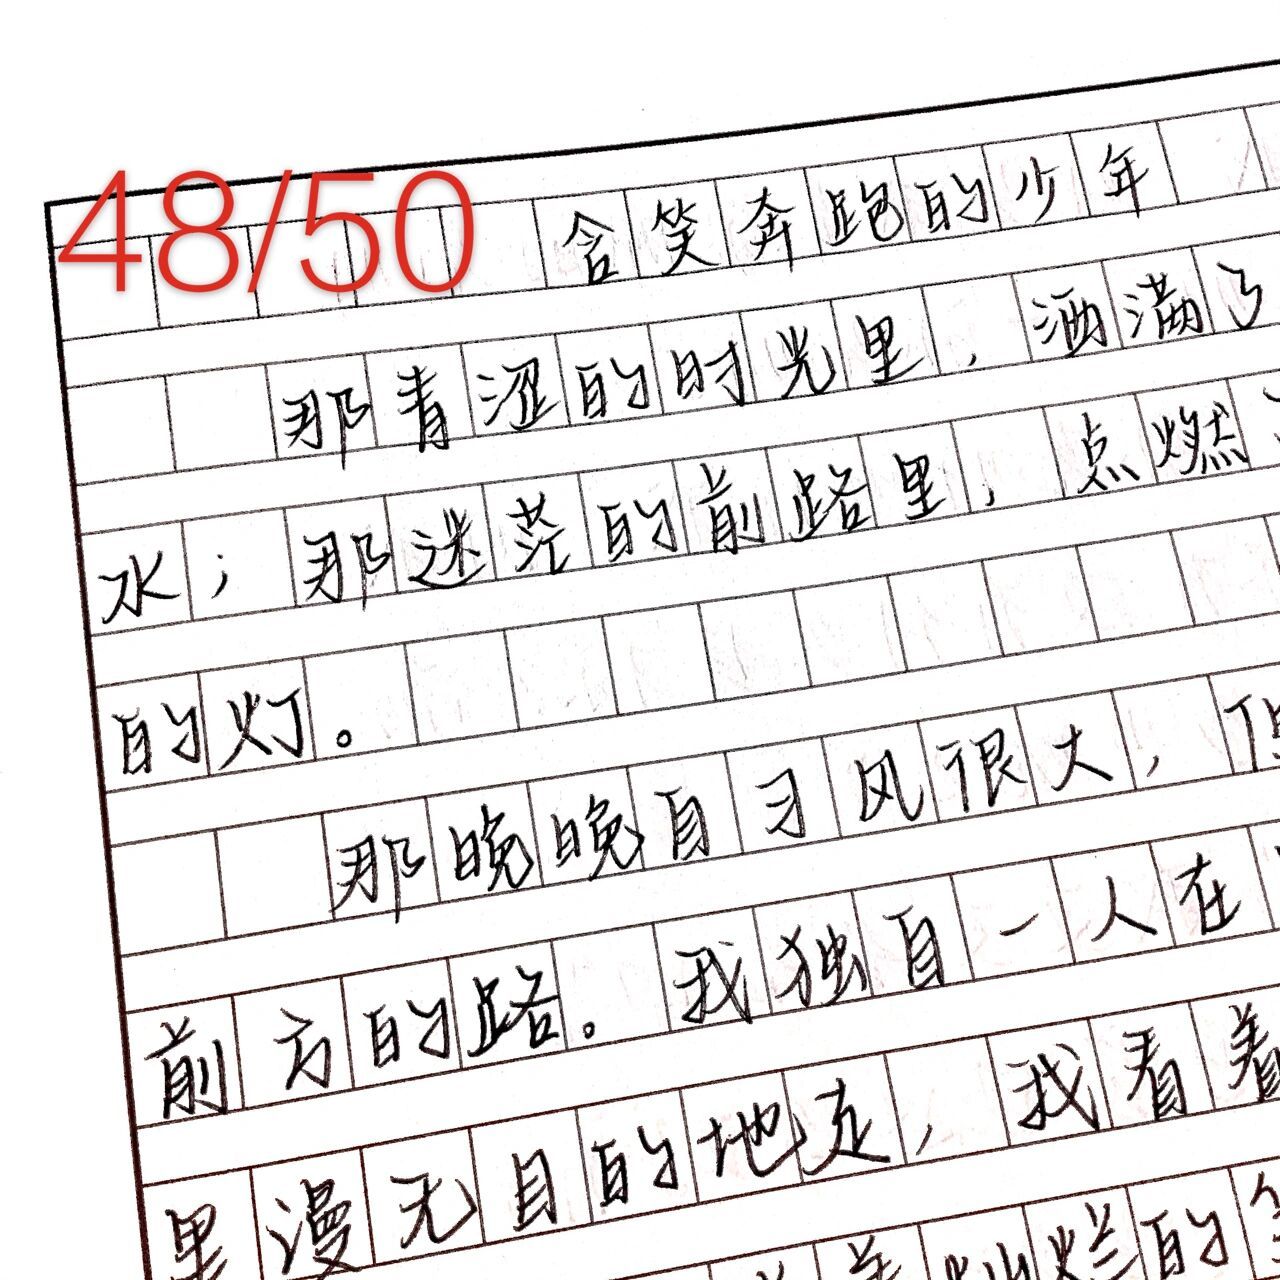 48/50
含笑奔跑的少年
那青涩的时光里，洒满了
水；那迷茫的前路里，点燃
的灯。
那晚晚自习风很大，但
前方的路。我独自一人在
里漫无目的地走，我看着
灿烂的